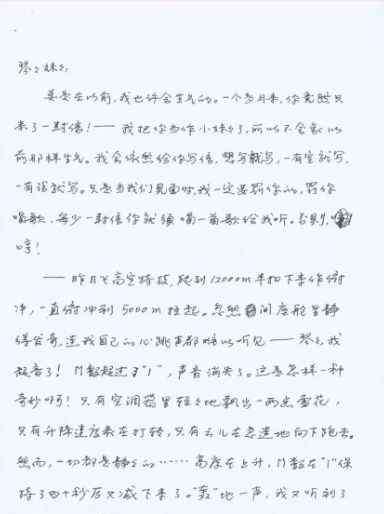 琴琴妹妹:
要是在以前,我也许会生气的。一个多月来,你竟然只
来了一封信!——我把你当作小妹了,所以不会象以
前那样生气。我会依然给你写信,想写就写,一有空就写,
一有话就写。只是当我们见面时,我一定要罚你的,罚你
唱歌,每少一封信你就须唱一首歌给我听。否则,
哼!
——昨日飞高空特技,爬到12000m半扣下来作俯
冲,一直俯冲到5000m拉起。忽然间座舱里静
得出奇,连我自己的心跳声都能听见——琴,我
超音了!M数超过了"1",声音消失了。这是怎样一种
奇妙呵!只有空调箱里轻轻地飘出一两点雪花,
只有升降速度表在打转,只有云儿在急速地向下跑去。
然而,一切都是静静的……高度在上升,M数在"1"保
持了四十秒后又减下来了。"轰"地一声,我又听到了